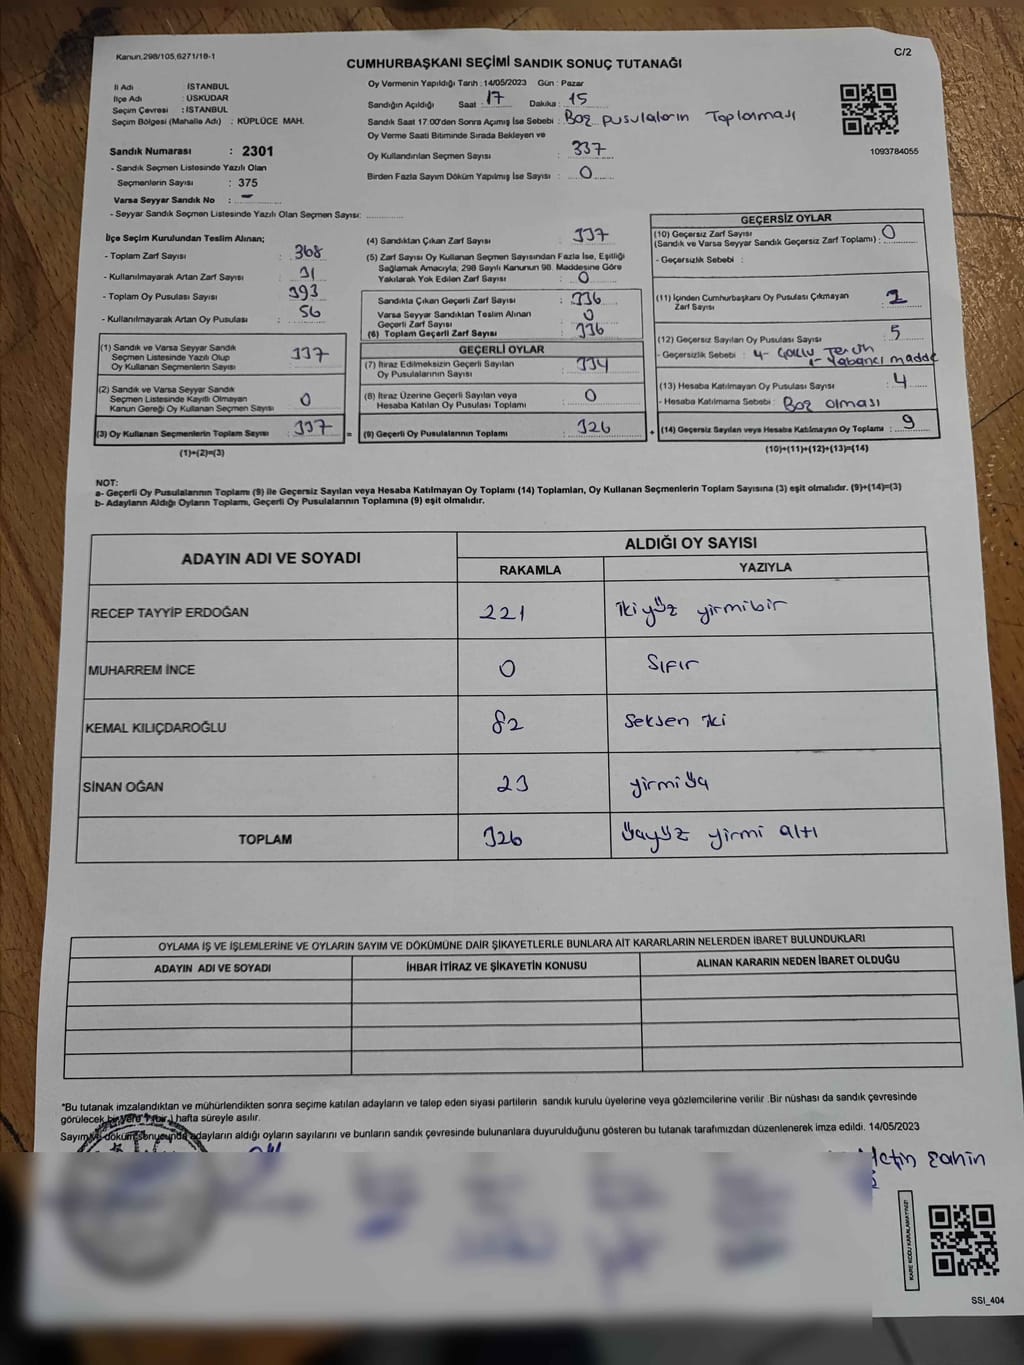 Kanun.298/105,6271/18-1
C/2
CUMHURBAŞKANI SEÇİMİ SANDIK SONUÇ TUTANAĞI
İl Adı İSTANBUL
İlçe Adı : ÜSKÜDAR
Seçim Çevresi : İSTANBUL
Seçim Bölgesi (Mahalle Adı) : KÜPLÜCE MAH.
Sandık Numarası : 2301
- Sandık Seçmen Listesinde Yazılı Olan
Seçmenlerin Sayısı : 375
Varsa Seyyar Sandık No : -
- Seyyar Sandık Seçmen Listesinde Yazılı Olan Seçmen Sayısı:
Oy Vermenin Yapıldığı Tarih : 14/05/2023 Gün : Pazar
Sandığın Açıldığı Saat : 17 Dakika : 15
Sandık Saat 17.00'den Sonra Açımış İse Sebebi : Boş pusulaların Toplanması
Oy Verme Saati Bitiminde Sırada Bekleyen ve
Oy Kullandırılan Seçmen Sayısı : 337
Birden Fazla Sayım Döküm Yapılmış İse Sayısı : 0
1093784055
İlçe Seçim Kurulundan Teslim Alınan;
- Toplam Zarf Sayısı : 368
- Kullanılmayarak Artan Zarf Sayısı : 31
- Toplam Oy Pusulası Sayısı : 393
- Kullanılmayarak Artan Oy Pusulası : 56
(1) Sandık ve Varsa Seyyar Sandık
Seçmen Listesinde Yazılı Olup
Oy Kullanan Seçmenlerin Sayısı : 337
(2) Sandık ve Varsa Seyyar Sandık
Seçmen Listesinde Kayıtlı Olmayan
Kanun Gereği Oy Kullanan Seçmen Sayısı : 0
(3) Oy Kullanan Seçmenlerin Toplam Sayısı : 337
(1)+(2)=(3)
(4) Sandıktan Çıkan Zarf Sayısı : 337
(5) Zarf Sayısı Oy Kullanan Seçmen Sayısından Fazla İse, Eşitliği
Sağlamak Amacıyla; 298 Sayılı Kanunun 98. Maddesine Göre
Yakılarak Yok Edilen Zarf Sayısı : 0
Sandıkta Çıkan Geçerli Zarf Sayısı : 336
Varsa Seyyar Sandıktan Teslim Alınan
Geçerli Zarf Sayısı : 0
(6) Toplam Geçerli Zarf Sayısı : 336
GEÇERLİ OYLAR
(7) İtiraz Edilmeksizin Geçerli Sayılan
Oy Pusulalarının Sayısı : 334
(8) İtiraz Üzerine Geçerli Sayılan veya
Hesaba Katılan Oy Pusulası Toplamı : 0
= (9) Geçerli Oy Pusulalarının Toplamı : 326 +
GEÇERSİZ OYLAR
(10) Geçersiz Zarf Sayısı
(Sandık ve Varsa Seyyar Sandık Geçersiz Zarf Toplamı) : 0
- Geçersizlik Sebebi :
(11) İçinden Cumhurbaşkanı Oy Pusulası Çıkmayan
Zarf Sayısı :
(12) Geçersiz Sayılan Oy Pusulası Sayısı : 5
- Geçersizlik Sebebi : 4- Çoklu Tercih
1- Yabancı madde
(13) Hesaba Katılmayan Oy Pusulası Sayısı : 4
- Hesaba Katılmama Sebebi : Boş olması
(14) Geçersiz Sayılan veya Hesaba Katılmayan Oy Toplamı : 9
(10)+(11)+(12)+(13)=(14)
NOT:
a- Geçerli Oy Pusulalarının Toplamı (9) ile Geçersiz Sayılan veya Hesaba Katılmayan Oy Toplamı (14) Toplamları, Oy Kullanan Seçmenlerin Toplam Sayısına (3) eşit olmalıdır. (9)+(14)=(3)
b- Adayların Aldığı Oyların Toplamı, Geçerli Oy Pusulalarının Toplamına (9) eşit olmalıdır.
ADAYIN ADI VE SOYADI ALDIĞI OY SAYISI
RAKAMLA YAZIYLA
RECEP TAYYİP ERDOĞAN 221 iki yüz yirmibir
MUHARREM İNCE 0 Sıfır
KEMAL KILIÇDAROĞLU 82 Seksen iki
SİNAN OĞAN 23 yirmi üç
TOPLAM 326 üçyüz yirmi altı
OYLAMA İŞ VE İŞLEMLERİNE VE OYLARIN SAYIM VE DÖKÜMÜNE DAİR ŞİKAYETLERLE BUNLARA AİT KARARLARIN NELERDEN İBARET BULUNDUKLARI
ADAYIN ADI VE SOYADI İHBAR İTİRAZ VE ŞİKAYETİN KONUSU ALINAN KARARIN NEDEN İBARET OLDUĞU
*Bu tutanak imzalandıktan ve mühürlendikten sonra seçime katılan adayların ve talep eden siyasi partilerin sandık kurulu üyelerine veya gözlemcilerine verilir .Bir nüshası da sandık çevresinde
görülecek bir yere 1 (bir ) hafta süreyle asılır.
Sayım ve döküm sonucunda adayların aldığı oyların sayılarını ve bunların sandık çevresinde bulunanlara duyurulduğunu gösteren bu tutanak tarafımızdan düzenlenerek imza edildi. 14/05/2023
Metin Şahin
KARE KODU KARALAMAYINIZ!
SSI_404